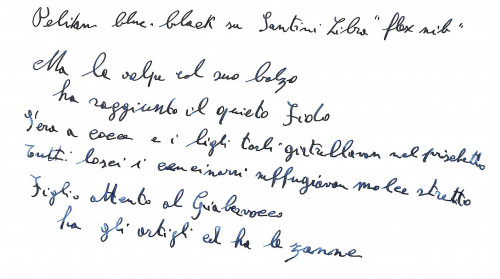 Pelikan blue-black su Santini Libra "flex nib"
Ma la volpe col suo balzo
ha raggiunto il quieto Fido
S'era a cocce e i ligli tarli girtrellavan nel
Tutti losci i suffugiavan molce stretto
Figlio attento al Giabervocco
ha gli artigli ed ha le zanne